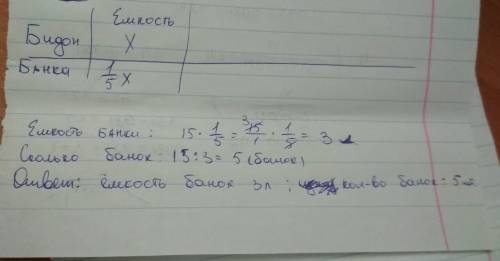 Емкость
Бидон X
Банка 1/5 X
Емкость банки: 15 · 1/5 = 15/1 · 1/5 = 3 л
Сколько банок: 15 : 3 = 5 (банок)
Ответ: ёмкость банок 3л ; кол-во банок: 5